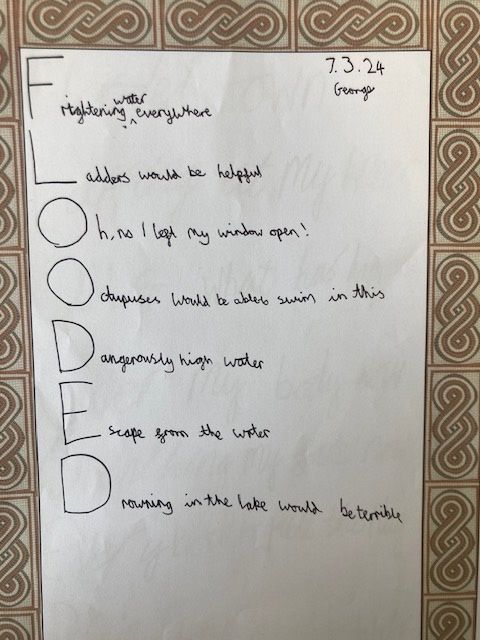 7.3.24
George
Frightening water everywhere
Ladders would be helpful
Oh, no I left my window open!
Octupuses would be able to swim in this
Dangerously high water
Escape from the water
Drowning in the lake would be terrible